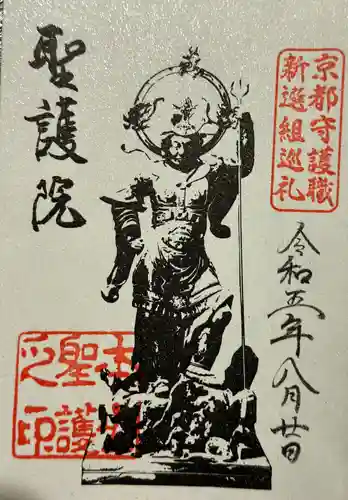 京都守護職
新選組巡礼
令和五年八月廿日
聖護院
本山
聖護院
之印